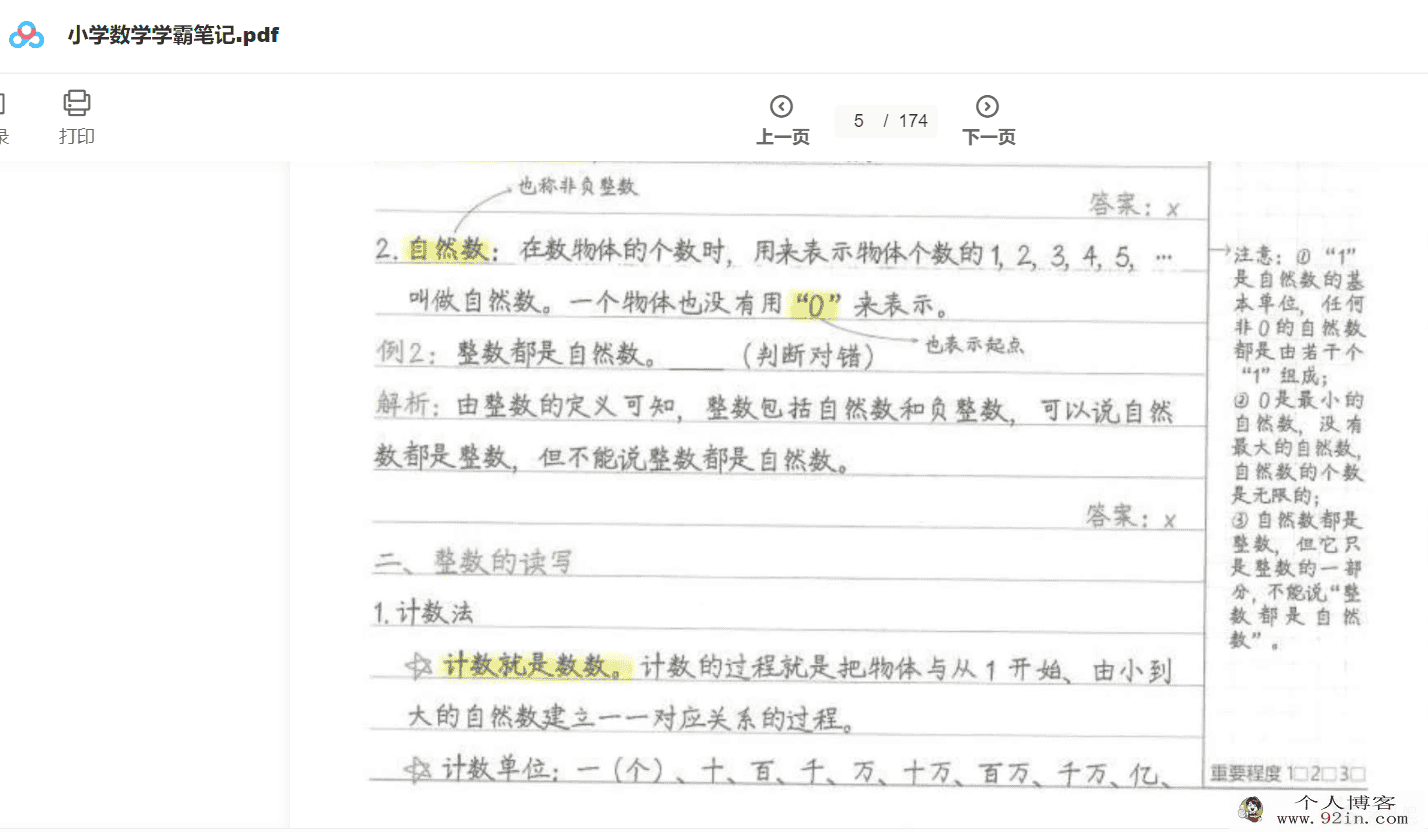 小学数学学霸笔记.pdf
录 打印
上一页 5 / 174 下一页
也称非负整数
答案：x
2. 自然数：在数物体的个数时，用来表示物体个数的1, 2, 3, 4, 5, …
叫做自然数。一个物体也没有用“0”来表示。
也表示起点
例2：整数都是自然数。____（判断对错）
解析：由整数的定义可知，整数包括自然数和负整数，可以说自然
数都是整数，但不能说整数都是自然数。
答案：x
二、整数的读写
1. 计数法
☆ 计数就是数数。计数的过程就是把物体与从1开始、由小到
大的自然数建立一一对应关系的过程。
☆ 计数单位：一（个）、十、百、千、万、十万、百万、千万、亿、
注意：① “1”
是自然数的基
本单位，任何
非0的自然数
都是由若干个
“1”组成；
② 0是最小的
自然数，没有
最大的自然数，
自然数的个数
是无限的；
③ 自然数都是
整数，但它只
是整数的一部
分，不能说“整
数都是自然
数”。
重要程度 1□2□3□
个人博客
www.92in.com